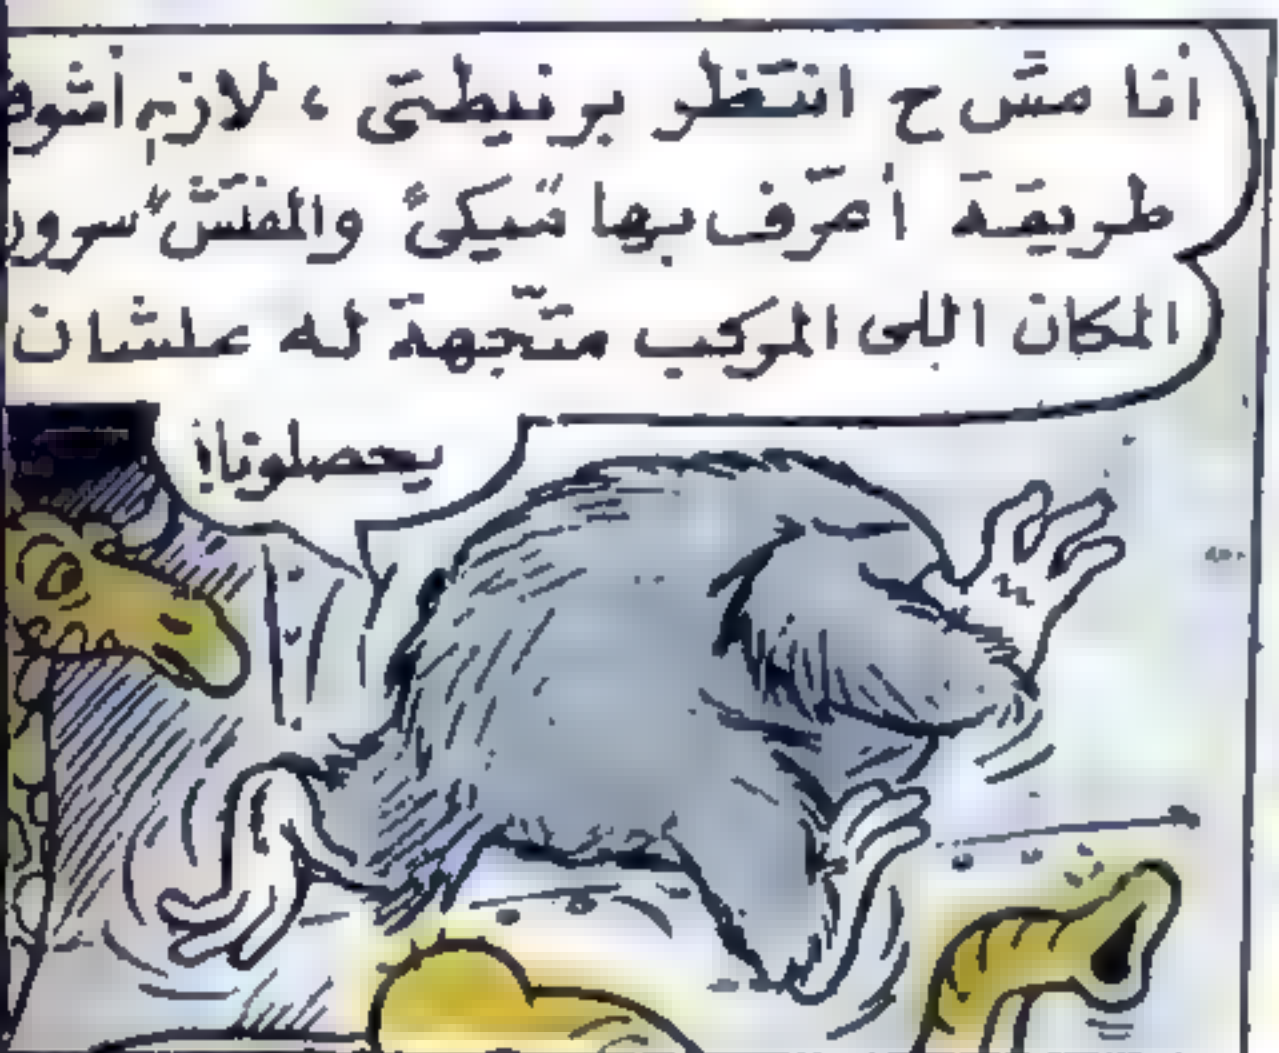 أنا مش ح انتظر برنيطتى ، لازم أشوف
طريقة أعرّف بها "ميكى" والمفتش "سرور"
المكان اللى المركب متّجهة له علشان
يحصلونا!